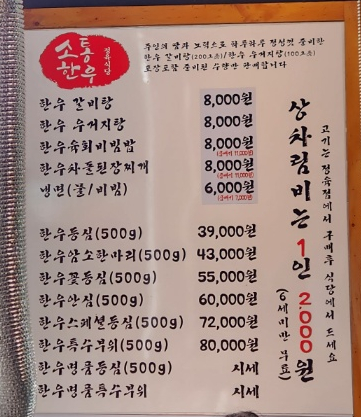 소통
한우
정육식당
주인의 땀과 노력으로 하루하루 정성껏 준비한
한우 갈비탕(200그릇)/한우 우거지탕(100그릇)
으로 준비된 수량만 판매합니다
한우 갈비탕 8,000원
한우 우거지탕 8,000원
한우육회비빔밥 8,000원
(곱빼기 11,000원)
한우차돌된장찌개 8,000원
(곱빼기 11,000원)
냉면(물/비빔) 6,000원
(곱빼기 7,000원)
한우등심(500g) 39,000원
한우암소한마리(500g) 43,000원
한우꽃등심(500g) 55,000원
한우안심(500g) 60,000원
한우스페셜등심(500g) 72,000원
한우특수부위(500g) 80,000원
한우명품등심(500g) 시세
한우명품특수부위 시세
고기는 정육점에서 구매후 식당에서 드세요
상차림비는 1인 2000원
(6세미만 무료)